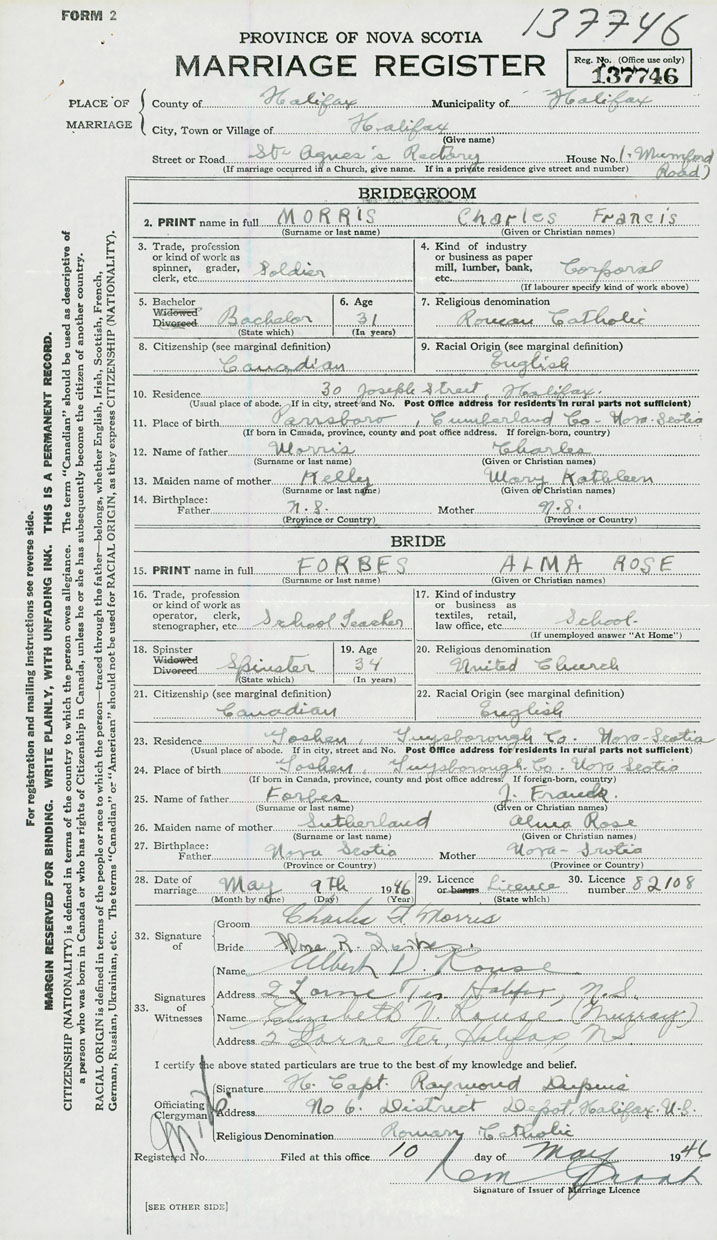 FORM 2
137746
PROVINCE OF NOVA SCOTIA
MARRIAGE REGISTER
Reg. No. (Office use only)
137746
PLACE OF MARRIAGE
County of Halifax Municipality of Halifax
City, Town or Village of Halifax
(Give name)
Street or Road St. Agnes's Rectory House No. (Mumford Road)
(If marriage occurred in a Church, give name. If in a private residence give street and number)
BRIDEGROOM
2. PRINT name in full MORRIS Charles Francis
(Surname or last name) (Given or Christian names)
3. Trade, profession or kind of work as spinner, grader, clerk, etc. Soldier
4. Kind of industry or business as paper mill, lumber, bank, etc. Corporal
(If labourer specify kind of work above)
5. Bachelor Widowed Divorced Bachelor
(State which)
6. Age 31
(In years)
7. Religious denomination
Roman Catholic
8. Citizenship (see marginal definition)
Canadian
9. Racial Origin (see marginal definition)
English
10. Residence 30 Joseph Street Halifax.
(Usual place of abode. If in city, street and No. Post Office address for residents in rural parts not sufficient)
11. Place of birth Parrsboro, Cumberland Co- Nova-Scotia
(If born in Canada, province, county and post office address. If foreign-born, country)
12. Name of father Morris Charles
(Surname or last name) (Given or Christian names)
13. Maiden name of mother Kelly Mary Kathleen
(Surname or last name) (Given or Christian names)
14. Birthplace:
Father N.S. Mother N.S.
(Province or Country) (Province or Country)
BRIDE
15. PRINT name in full FORBES ALMA ROSE
(Surname or last name) (Given or Christian names)
16. Trade, profession or kind of work as operator, clerk, stenographer, etc. School Teacher
17. Kind of industry or business as textiles, retail, law office, etc. School-
(If unemployed answer "At Home")
18. Spinster Widowed Divorced Spinster
(State which)
19. Age 34
(In years)
20. Religious denomination
United Church
21. Citizenship (see marginal definition)
Canadian
22. Racial Origin (see marginal definition)
English
23. Residence Goshen, Guysborough Co. Nova-Scotia
(Usual place of abode. If in city, street and No. Post Office address for residents in rural parts not sufficient)
24. Place of birth Goshen, Guysborough Co. Nova Scotia
(If born in Canada, province, county and post office address. If foreign-born, country)
25. Name of father Forbes J. Frank.
(Surname or last name) (Given or Christian names)
26. Maiden name of mother Sutherland Alma Rose
(Surname or last name) (Given or Christian names)
27. Birthplace:
Father Nova Scotia Mother Nova-Scotia
(Province or Country) (Province or Country)
28. Date of marriage May 9th 1946
(Month by name) (Day) (Year)
29. Licence or banns Licence
(State which)
30. Licence number 82108
32. Signature of
Groom Charles F. Morris
Bride Alma R. Forbes
33. Signatures of Witnesses
Name Albert D. Rouse
Address 2 Lorne Ter Halifax, N.S.
Name Elizabeth V. Rouse (Murray)
Address 2 Lorne Ter, Halifax, NS
I certify the above stated particulars are true to the best of my knowledge and belief.
Officiating Clergyman
Signature H. Capt. Raymond Dupuis
Address No 6. District Depot, Halifax. N.S.
Religious Denomination Roman Catholic
Registered No. Filed at this office 10 day of May 1946
Signature of Issuer of Marriage Licence
[SEE OTHER SIDE]
For registration and mailing instructions see reverse side.
MARGIN RESERVED FOR BINDING. WRITE PLAINLY, WITH UNFADING INK. THIS IS A PERMANENT RECORD.
CITIZENSHIP (NATIONALITY) is defined in terms of the country to which the person owes allegiance. The term "Canadian" should be used as descriptive of
a person who was born in Canada or who has rights of Citizenship in Canada, unless he or she has subsequently become the citizen of another country.
RACIAL ORIGIN is defined in terms of the people or race to which the person—traced through the father—belongs, whether English, Irish, Scottish, French,
German, Russian, Ukrainian, etc. The terms "Canadian" or "American" should not be used for RACIAL ORIGIN, as they express CITIZENSHIP (NATIONALITY).